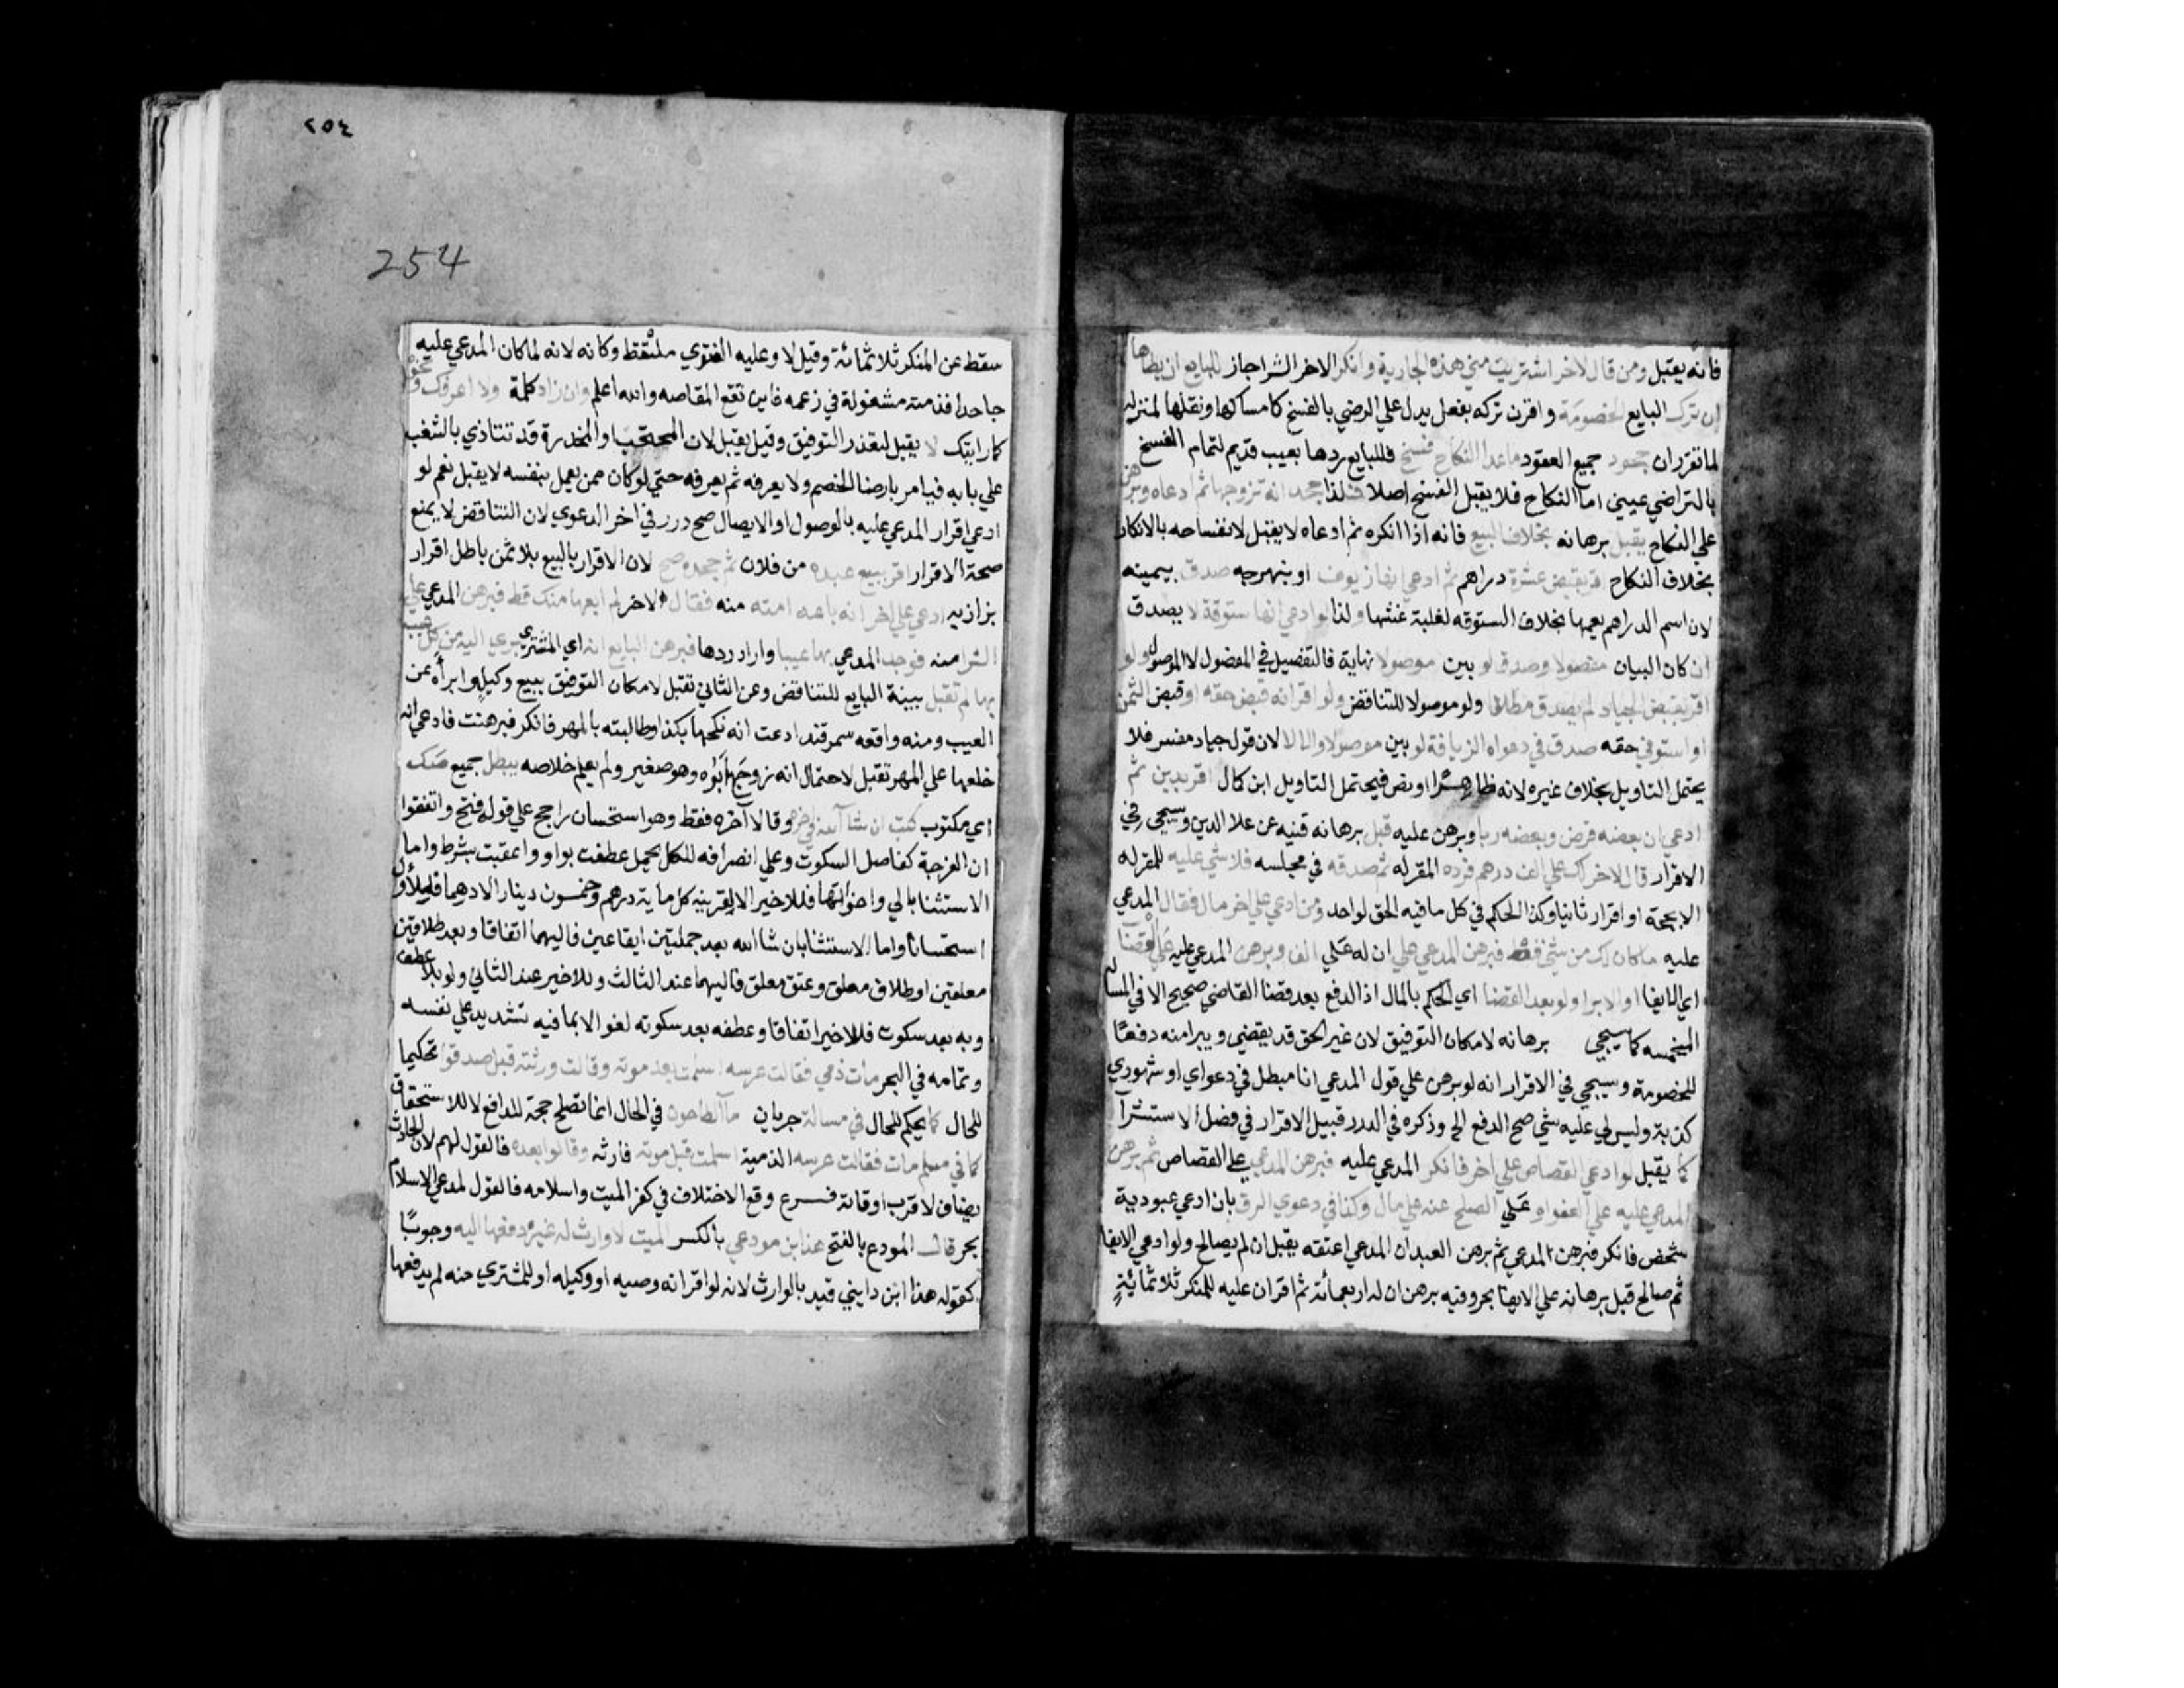 فانه يقبل ومن قال لاخر اشتريت مني هذه الجارية وانكر الاخر الشرا جاز للبايع ان يطاها
ان ترك البايع الخصومة واقرن تركه بفعل يدل علي الرضي بالفسخ كامساكها ونقلها لمنزله
لما تقرر ان جحود جميع العقود ماعدا النكاح فسخ فللبايع ردها بعيب قديم لتمام الفسخ
بالتراضي عيني اما النكاح فلا يقبل الفسخ اصلا فلذا جحد انه تزوجها ثم ادعاه وبرهن
علي النكاح يقبل برهانه بخلاف البيع فانه اذا انكره ثم ادعاه لا يقبل لانفساخه بالانكار
بخلاف النكاح اقر بقبض عشرة دراهم ثم ادعي انها زيوف او بنهرجه صدق بيمينه
لان اسم الدراهم يعمها بخلاف الستوقه لغلبة غشها ولذا لو ادعي انها ستوقة لا يصدق
ان كان البيان مفصولا وصدق لو بين موصولا نهاية فالتفصيل في المفصول لا الموصول ولو
اقر بقبض الجياد لم يصدق مطلقا ولو موصولا للتناقض ولو اقر انه قبض حقه او قبض الثمن
او استوفي حقه صدق في دعواه الزيافة لو بين موصولا والا لا لان قوله جياد مفسر فلا
يحتمل التاويل بخلاف غيره لانه ظاهر او نص فيحتمل التاويل ابن كمال اقر بدين ثم
ادعي ان بعضه قرض وبعضه ربا وبرهن عليه قبل برهانه قنيه عن علا الدين وسيجي في
الاقرار قال لاخر لك علي الف درهم فرده المقر له ثم صدقه في مجلسه فلا شي عليه للمقر له
الا بحجة او اقرار ثانيا وكذا الحكم في كل ما فيه الحق لواحد ومن ادعي علي اخر مال فقال المدعي
عليه ما كان لك من شي قط فبرهن المدعي علي ان له علي الف وبرهن المدعي عليه علي القضا
اي الايفا او الابرا ولو بعد القضا اي الحكم بالمال اذ الدفع بعد قضا القاضي صحيح الا في المسالة
المخمسه كما سيجي برهانه لامكان التوفيق لان غير الحق قد يقضي ويبرا منه دفعًا
للخصومة وسيجي في الاقرار انه لو برهن علي قول المدعي انا مبطل في دعواي او شهودي
كذبة وليس لي عليه شي صح الدفع الخ وذكره في الدرر قبيل الاقرار في فصل الاستشرآ
كما يقبل لو ادعي القصاص علي اخر فانكر المدعي عليه فبرهن المدعي علي القصاص ثم برهن
المدعي عليه علي العفو او علي الصلح عنه علي مال وكذا في دعوي الرق بان ادعي عبودية
شخص فانكر فبرهن المدعي ثم برهن العبد ان المدعي اعتقه يقبل ان لم يصالح ولو ادعي الايفا
ثم صالح قبل برهانه علي الايفا بحر وفيه برهن ان له اربعمائة ثم اقر ان عليه للمنكر ثلاثمائةٍ
٢٥٤
254
سقط عن المنكر ثلاثمائة وقيل لا وعليه الفتوي ملتقط وكانه لانه لما كان المدعي عليه
جاحدا فذمته مشغولة في زعمه فاين تقع المقاصه والله اعلم وان زاد كلمة ولا اعرفك ونحوه
كما رايتك لا يقبل لتعذر التوفيق وقيل يقبل لان المحتجب او المخدرة قد تتاذي بالشغب
علي بابه فيامر بارضا الخصم ولا يعرفه ثم يعرفه حتي لو كان ممن يعمل بنفسه لا يقبل نعم لو
ادعي اقرار المدعي عليه بالوصول او الايصال صح درر في اخر الدعوي لان التناقض لا يمنع
صحة الاقرار اقر ببيع عبده من فلان ثم جحده صح لان الاقرار بالبيع بلا ثمن باطل اقرار
بزازيه ادعي علي اخر انه باعه امته منه فقال الاخر لم ابعها منك قط فبرهن المدعي علي
الشرا منه فوجد المدعي بها عيبا واراد ردها فبرهن البايع انه اي المشتري بري اليه من كل عيب
بها لم تقبل بينة البايع للتناقض وعن الثاني تقبل لامكان التوفيق ببيع وكيله وابرأه عن
العيب ومنه واقعه سمرقند ادعت انه نكحها بكذا وطالبته بالمهر فانكر فبرهنت فادعي انه
خلعها علي المهر تقبل لاحتمال انه زوجها ابوه وهو صغير ولم يعلم خلاصه يبطل جميع صك
اي مكتوب كتب ان شا الله في اخره وقالا آخره فقط وهو استحسان راجح علي قوله فتح واتفقوا
ان الفرجة كفاصل السكوت وعلي انصرافه للكل بجمل عطفت بواو واعقبت بشرط واما
الاستثنا بالي واخواتها فللاخير الا لقرينة كله ماية درهم وخمسون دينار الا درهما فللاول
استحسانا واما الاستثنا بان شا الله بعد جملتين ايقاعين فاليهما اتفاقا وبعد طلاقين
معلقين او طلاق معلق وعتق معلق فاليهما عند الثالث وللاخير عند الثاني ولو بلا عطف
وبه بعد سكوت فللاخير اتفاقا وعطفه بعد سكوته لغو الا بما فيه تشديد علي نفسه
وتمامه في البحر مات ذمي فقالت عرسه اسلمت بعد موته وقالت ورثته قبله صدقوا تحكيما
للحال كما يحكم للحال في مسالة جريان ما الطاحون في الحال انما تصلح حجة للدافع لا للاستحقاق
كما في مسلم مات فقالت عرسه الذمية اسلمت قبل موته فارثه وقالوا بعده فالقول لهم لان الحادث
يضاف لاقرب اوقاته فــرع وقع الاختلاف في كفر الميت واسلامه فالقول لمدعي الاسلام
بحر قال المودع بالفتح هذا ابن مودعي بالكسر الميت لا وارث له غيره دفعها اليه وجوبًا
كقوله هذا ابن دايني قيد بالوارث لانه لو اقر انه وصيه او وكيله او للمشتري منه لم يدفعها